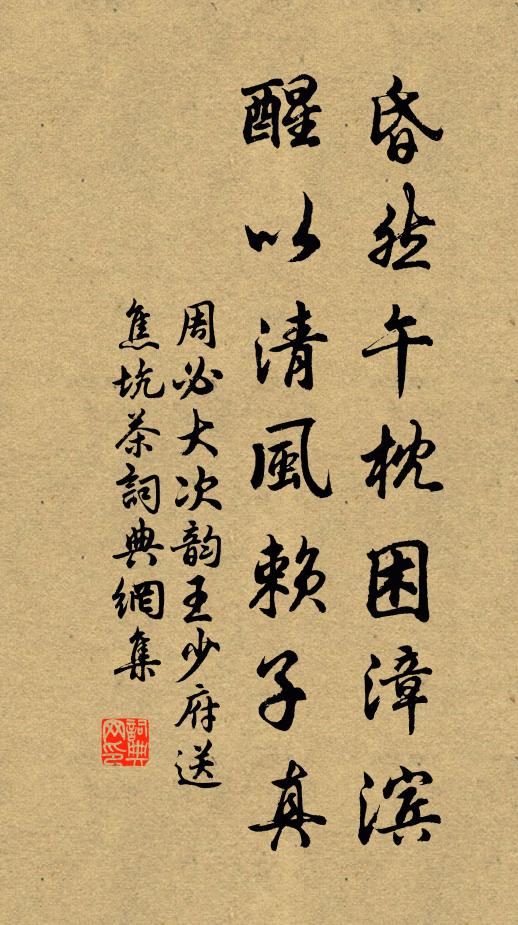 昏然午枕困漳滨
醒以清風赖子真
周必大次韵王少府送
焦坑茶詞典網集
詞典网印